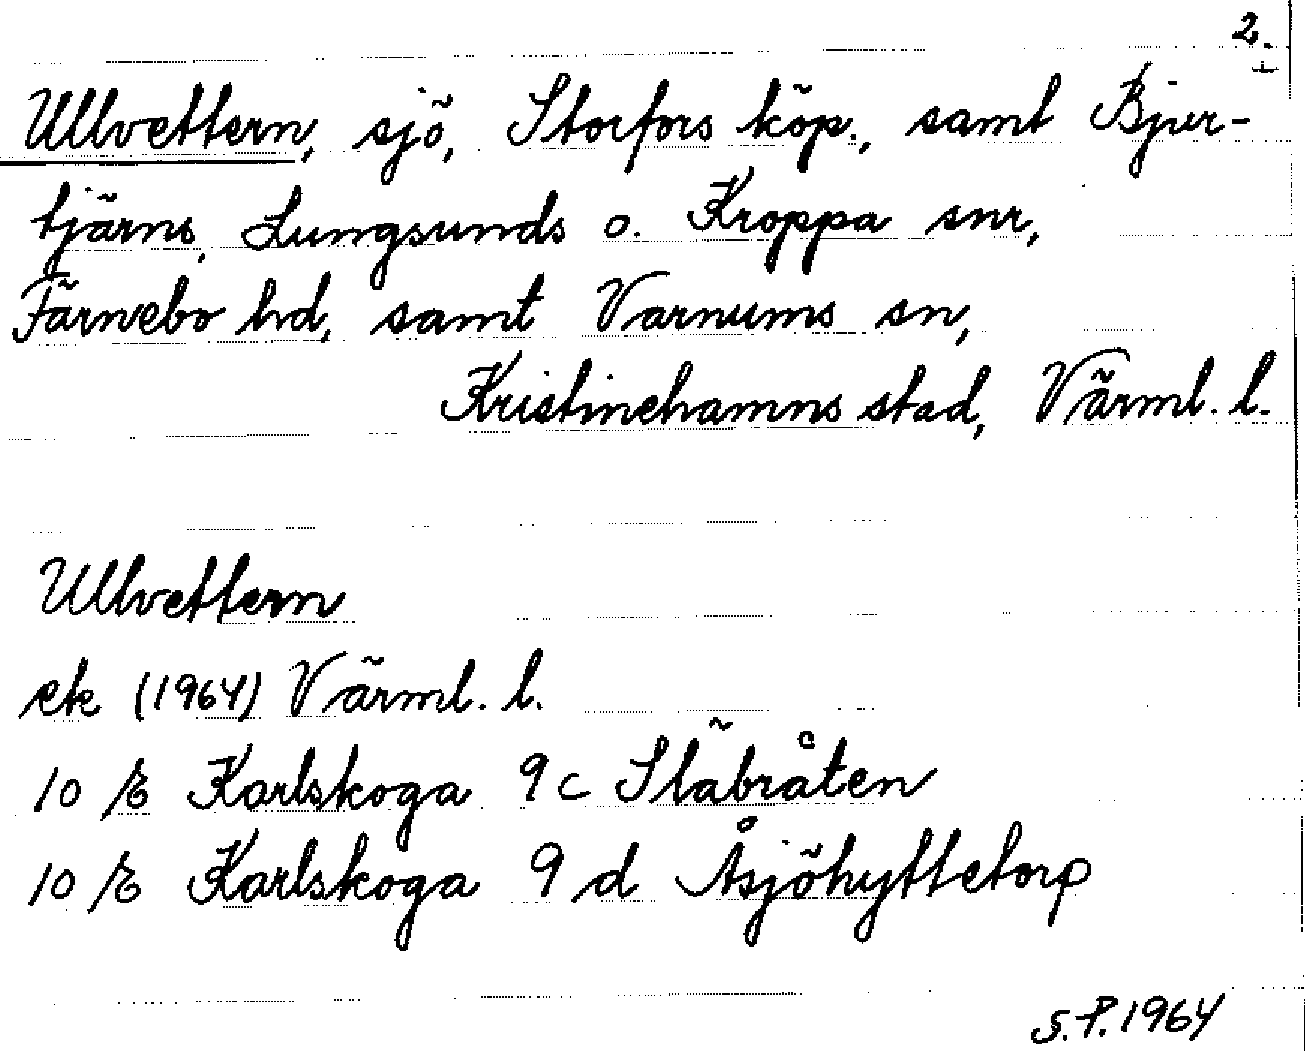 2.
Ullvettern, sjö, Storfors köp., samt Bjur-
tjärns, Lungsunds o. Kroppa snr,
Färnebo hd, samt Varnums sn,
Kristinehamns stad, Värml. l.
Ullvettern
ek (1964) Värml. l.
10 E Karlskoga 9 c Släbråten
10 E Karlskoga 9 d Åsjöhyttetorp
S.P. 1964